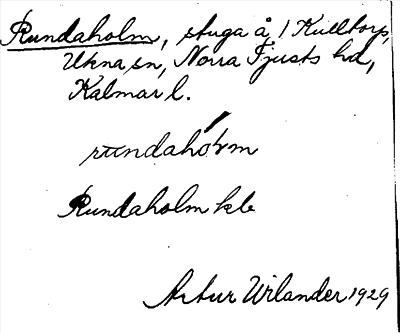 Rundaholm, stuga å 1 Kulltorp,
Ukna sn, Norra Tjusts hd,
Kalmar l.
rundahoḷm
Rundaholm kb
Artur Wilander 1929